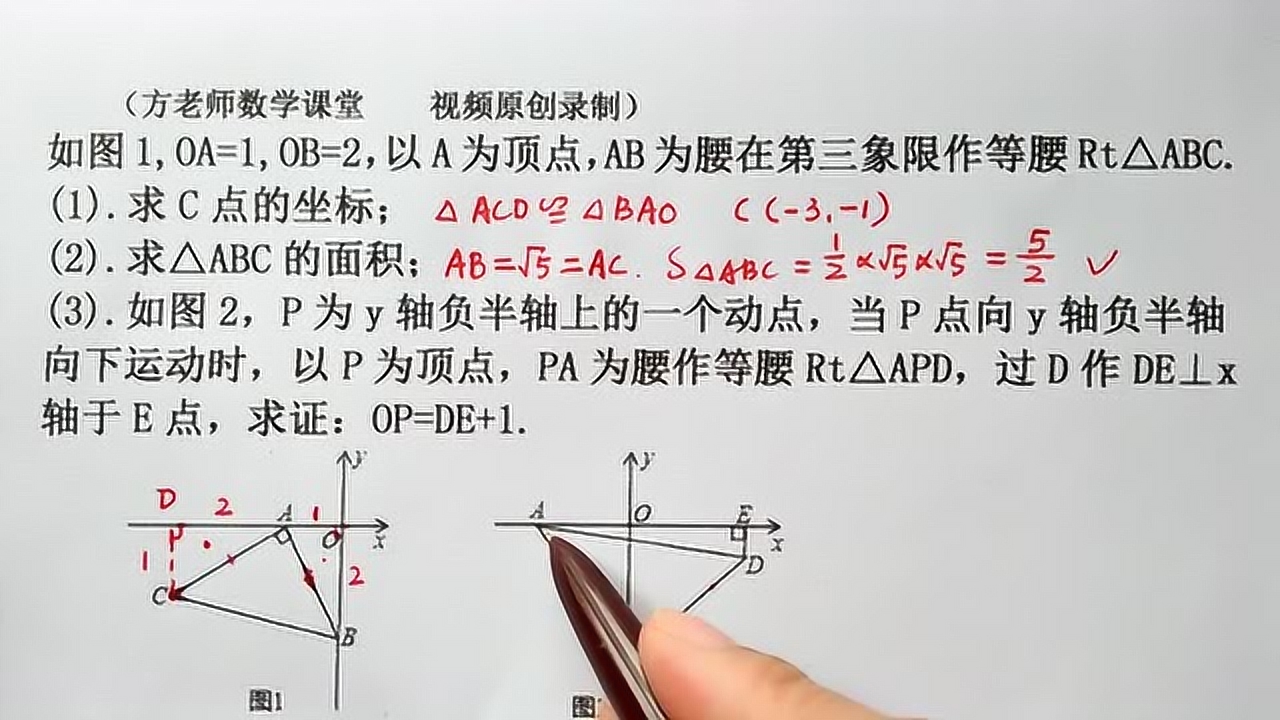 （方老师数学课堂 视频原创录制）
如图1,OA=1,OB=2,以A为顶点,AB为腰在第三象限作等腰Rt△ABC.
(1).求C点的坐标; △ACD≌△BAO C(-3,-1)
(2).求△ABC的面积; AB=√5=AC. S△ABC=1/2×√5×√5=5/2 ✓
(3).如图2,P为y轴负半轴上的一个动点,当P点向y轴负半轴
向下运动时,以P为顶点,PA为腰作等腰Rt△APD,过D作DE⊥x
轴于E点,求证:OP=DE+1.
y
D 2 A 1
O x
1 2
C
B
图1
y
A O E
x
D
图